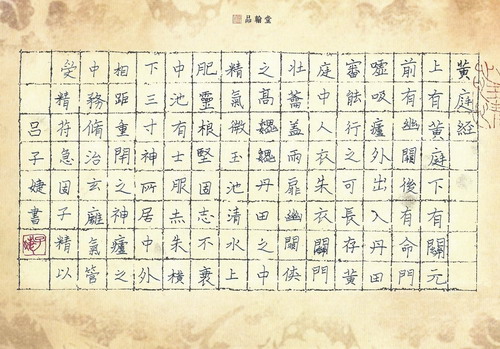 品翰堂
黄庭經
上有黄庭下有關元
前有幽闕後有命門
噓吸廬外出入丹田
審能行之可長存黄
庭中人衣朱衣關門
壯蘥蓋兩扉幽闕俠
之高巍巍丹田之中
精氣微玉池清水上
肥靈根堅固志不衰
中池有士服赤朱橫
下三寸神所居中外
相距重閉之神廬之
中務脩治玄廱氣管
受精苻急固子精以
呂子婕書